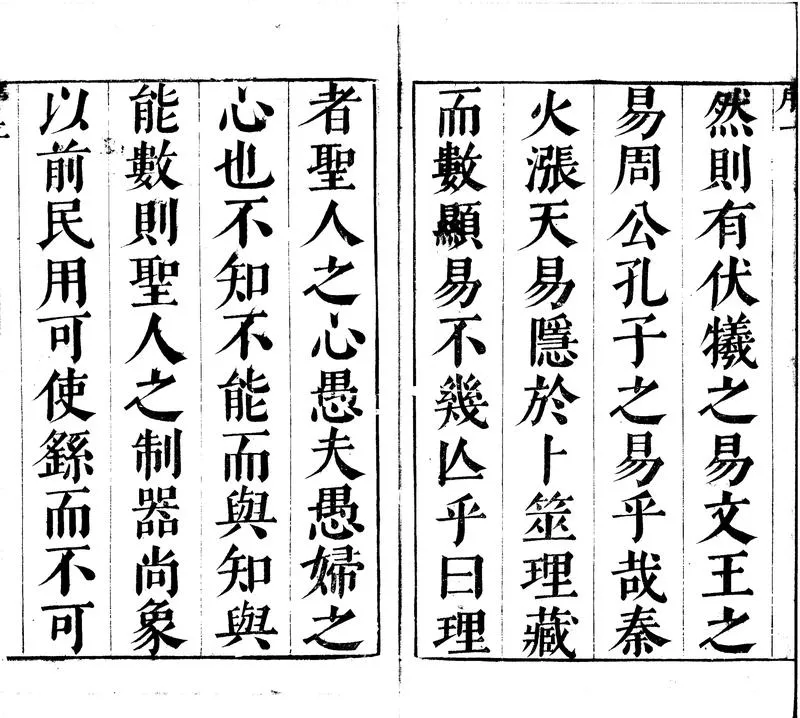 然則有伏犧之易文王之
易周公孔子之易乎哉秦
火漲天易隱於卜筮理藏
而數顯易不幾亾乎曰理
者聖人之心愚夫愚婦之
心也不知不能而與知與
能數則聖人之制器尚象
以前民用可使繇而不可